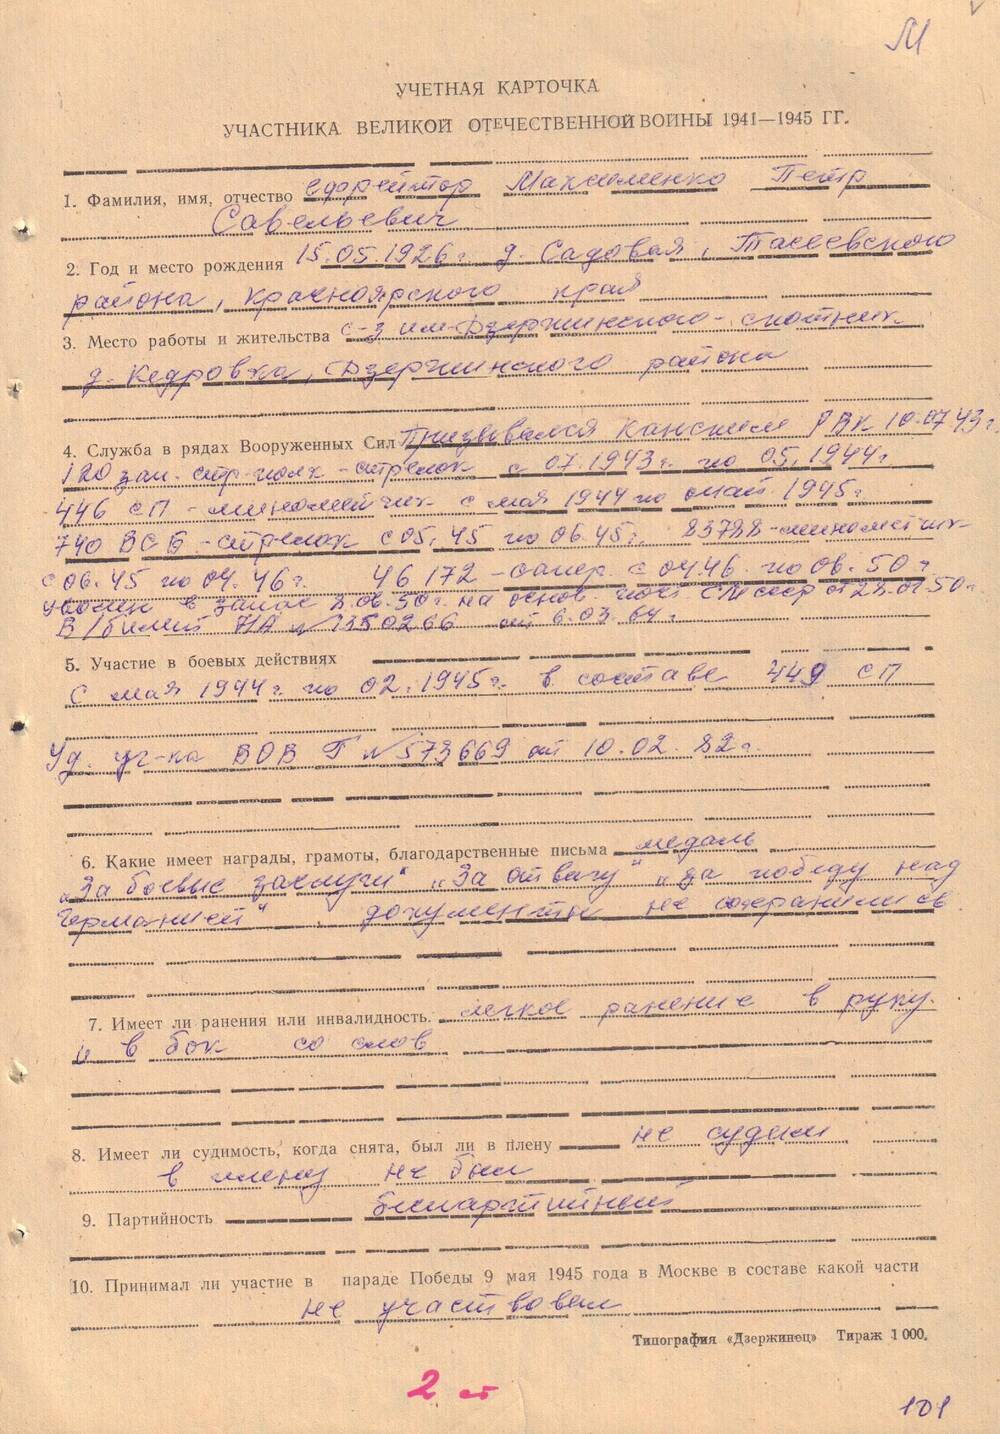 М
УЧЕТНАЯ КАРТОЧКА
УЧАСТНИКА ВЕЛИКОЙ ОТЕЧЕСТВЕННОЙ ВОЙНЫ 1941—1945 ГГ.
1. Фамилия, имя, отчество ефрейтор Максименко Петр
Савельевич
2. Год и место рождения 15.05.1926 г. д. Садовая, Тасеевского
района, Красноярского края
3. Место работы и жительства с-з им. Дзержинского - скотник
д. Кедровка, Дзержинского района
4. Служба в рядах Вооруженных Сил Призывался Канским РВК 10.07.43 г.
120 зап. стр. полк - стрелок с 07.1943 г. по 05.1944 г.
446 СП - минометчик с мая 1944 по май 1945 г.
740 ВСБ - стрелок с 05.45 по 06.45 г. 83788 - минометчик
с 06.45 по 04.46 г. 46172 - сапер с 04.46 по 06.50 г.
уволен в запас 8.06.50 г. на основ. пост. СМ СССР от 28.01.50 г.
В/билет НА № 1350266 от 6.03.64 г.
5. Участие в боевых действиях
с мая 1944 г. по 02.1945 г. в составе 449 СП
Уд. уч-ка ВОВ Г № 573669 от 10.02.82 г.
6. Какие имеет награды, грамоты, благодарственные письма медаль
„За боевые заслуги" „За отвагу" „За победу над
Германией", документы не сохранились
7. Имеет ли ранения или инвалидность. легкое ранение в руку
и в бок со слов
8. Имеет ли судимость, когда снята, был ли в плену не судим
в плену не был
9. Партийность беспартийный
10. Принимал ли участие в параде Победы 9 мая 1945 года в Москве в составе какой части
не участвовал
Типография «Дзержинец» Тираж 1 000.
2 ст
101